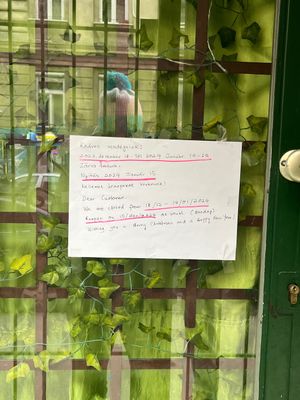 Kedves vendégeink!
2023. december 18 - tól 2024 Január 14-ig
Zárva
Nyitás 2024 Január 15
Kellemes ünnepeket kívánunk!
Dear Customer
We are closed from 18/12 - 14/01/2024
Reopen on 15/Jan/2024 as usual (Monday)
Wishing you a Merry Christmas and a happy New Year!